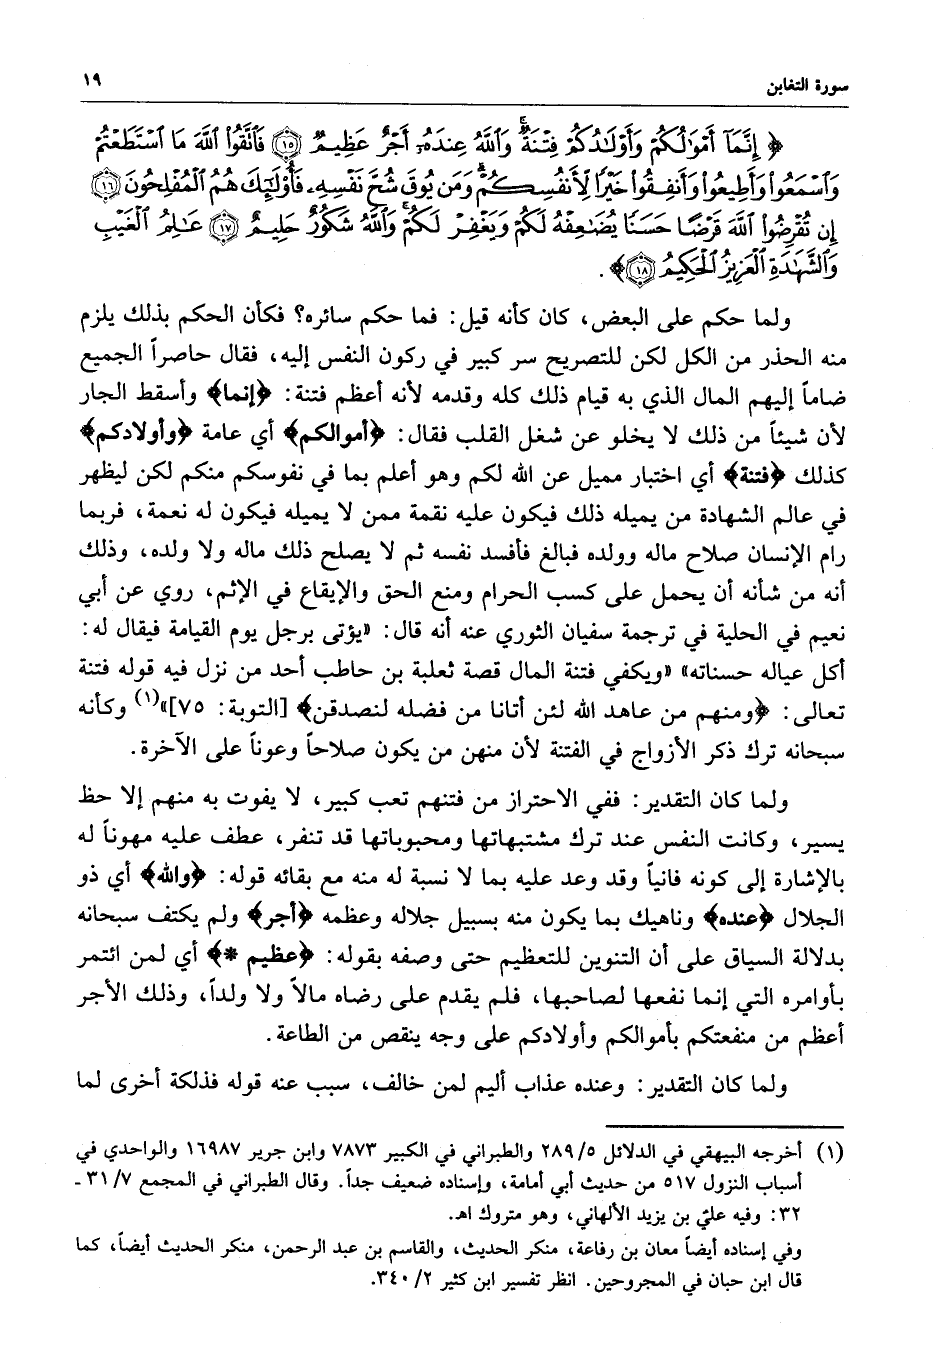 سورة التغابن ١٩
﴿ إِنَّمَآ أَمْوَٰلُكُمْ وَأَوْلَٰدُكُمْ فِتْنَةٌ ۚ وَٱللَّهُ عِندَهُۥٓ أَجْرٌ عَظِيمٌ ﴿١٥﴾ فَٱتَّقُوا۟ ٱللَّهَ مَا ٱسْتَطَعْتُمْ
وَٱسْمَعُوا۟ وَأَطِيعُوا۟ وَأَنفِقُوا۟ خَيْرًا لِّأَنفُسِكُمْ ۗ وَمَن يُوقَ شُحَّ نَفْسِهِۦ فَأُو۟لَٰٓئِكَ هُمُ ٱلْمُفْلِحُونَ ﴿١٦﴾
إِن تُقْرِضُوا۟ ٱللَّهَ قَرْضًا حَسَنًا يُضَٰعِفْهُ لَكُمْ وَيَغْفِرْ لَكُمْ ۚ وَٱللَّهُ شَكُورٌ حَلِيمٌ ﴿١٧﴾ عَٰلِمُ ٱلْغَيْبِ
وَٱلشَّهَٰدَةِ ٱلْعَزِيزُ ٱلْحَكِيمُ ﴿١٨﴾ ﴾ .
ولما حكم على البعض، كان كأنه قيل: فما حكم سائره؟ فكأن الحكم بذلك يلزم
منه الحذر من الكل لكن للتصريح سر كبير في ركون النفس إليه، فقال حاصراً الجميع
ضاماً إليهم المال الذي به قيام ذلك كله وقدمه لأنه أعظم فتنة: ﴿إنما﴾ وأسقط الجار
لأن شيئاً من ذلك لا يخلو عن شغل القلب فقال: ﴿أموالكم﴾ أي عامة ﴿وأولادكم﴾
كذلك ﴿فتنة﴾ أي اختبار مميل عن الله لكم وهو أعلم بما في نفوسكم منكم لكن ليظهر
في عالم الشهادة من يميله ذلك فيكون عليه نقمة ممن لا يميله فيكون له نعمة، فربما
رام الإنسان صلاح ماله وولده فبالغ فأفسد نفسه ثم لا يصلح ذلك ماله ولا ولده، وذلك
أنه من شأنه أن يحمل على كسب الحرام ومنع الحق والإيقاع في الإثم، روي عن أبي
نعيم في الحلية في ترجمة سفيان الثوري عنه أنه قال: «يؤتى برجل يوم القيامة فيقال له:
أكل عياله حسناته» «ويكفي فتنة المال قصة ثعلبة بن حاطب أحد من نزل فيه قوله فتنة
تعالى: ﴿ومنهم من عاهد الله لئن أتانا من فضله لنصدقن﴾ [التوبة: ٧٥]»(١) وكأنه
سبحانه ترك ذكر الأزواج في الفتنة لأن منهن من يكون صلاحاً وعوناً على الآخرة.
ولما كان التقدير: ففي الاحتراز من فتنهم تعب كبير، لا يفوت به منهم إلا حظ
يسير، وكانت النفس عند ترك مشتبهاتها ومحبوباتها قد تنفر، عطف عليه مهوناً له
بالإشارة إلى كونه فانياً وقد وعد عليه بما لا نسبة له منه مع بقائه قوله: ﴿والله﴾ أي ذو
الجلال ﴿عنده﴾ وناهيك بما يكون منه بسبيل جلاله وعظمه ﴿أجر﴾ ولم يكتف سبحانه
بدلالة السياق على أن التنوين للتعظيم حتى وصفه بقوله: ﴿عظيم *﴾ أي لمن ائتمر
بأوامره التي إنما نفعها لصاحبها، فلم يقدم على رضاه مالاً ولا ولداً، وذلك الأجر
أعظم من منفعتكم بأموالكم وأولادكم على وجه ينقص من الطاعة.
ولما كان التقدير: وعنده عذاب أليم لمن خالف، سبب عنه قوله فذلكة أخرى لما
(١) أخرجه البيهقي في الدلائل ٥/ ٢٨٩ والطبراني في الكبير ٧٨٧٣ وابن جرير ١٦٩٨٧ والواحدي في
أسباب النزول ٥١٧ من حديث أبي أمامة، وإسناده ضعيف جداً. وقال الطبراني في المجمع ٧/ ٣١ ـ
٣٢: وفيه عليّ بن يزيد الألهاني، وهو متروك اهـ.
وفي إسناده أيضاً معان بن رفاعة، منكر الحديث، والقاسم بن عبد الرحمن، منكر الحديث أيضاً، كما
قال ابن حبان في المجروحين. انظر تفسير ابن كثير ٢/ ٣٤٠.